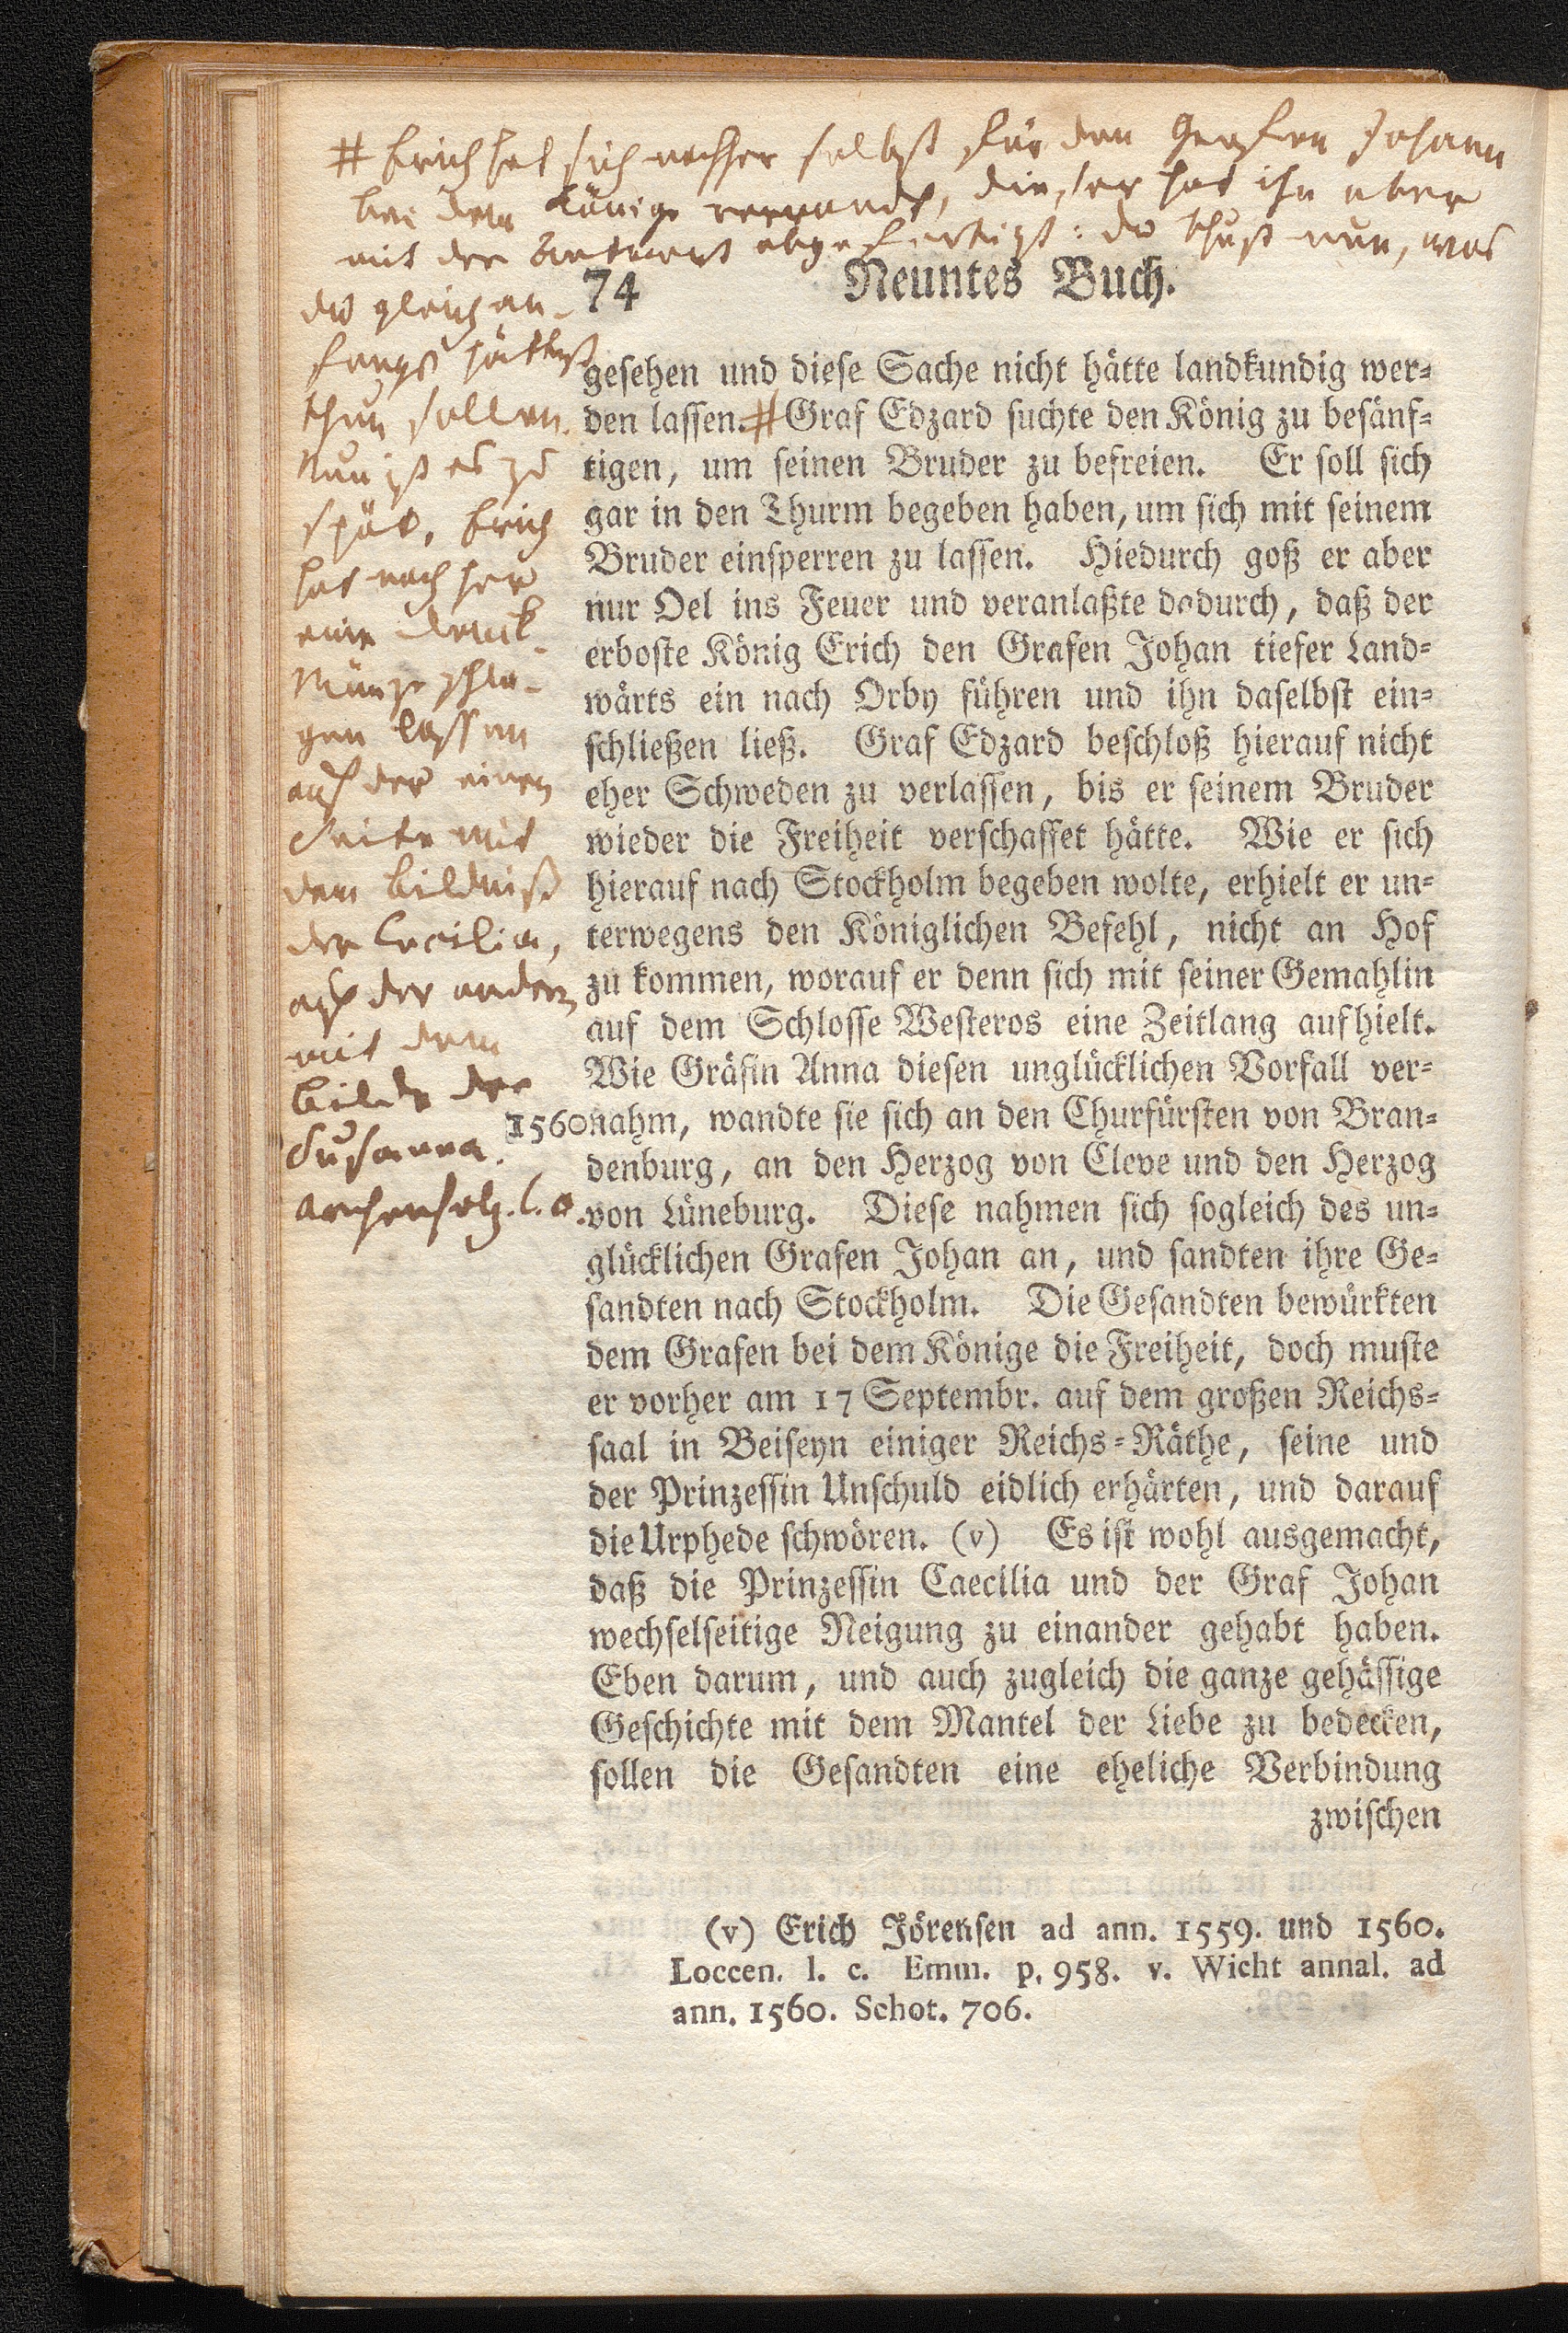 # Erich hat sich nachher selbst für den Grafen Johann
bei dem Könige verwandt, dieser hat ihn aber
mit der Antwort abgefertigt: du thust nun, was
du gleich an-
fangs hättest
thun sollen.
Nun ist es zu
spät. Erich
hat nachher
eine Denk-
Münze schla-
gen lassen
auf der einen
Seite mit
dem Bildniß
der Cecilia,
auf der andern
mit dem
Bilde der
Susanna.
Archenholz. l. c.
74 Neuntes Buch.
gesehen und diese Sache nicht hätte landkundig wer-
den lassen. # Graf Edzard suchte den König zu besänf-
tigen, um seinen Bruder zu befreien. Er soll sich
gar in den Thurm begeben haben, um sich mit seinem
Bruder einsperren zu lassen. Hiedurch goß er aber
nur Oel ins Feuer und veranlaßte dadurch, daß der
erboste König Erich den Grafen Johan tiefer Land-
wärts ein nach Orby führen und ihn daselbst ein-
schließen ließ. Graf Edzard beschloß hierauf nicht
eher Schweden zu verlassen, bis er seinem Bruder
wieder die Freiheit verschaffet hätte. Wie er sich
hierauf nach Stockholm begeben wolte, erhielt er un-
terwegens den Königlichen Befehl, nicht an Hof
zu kommen, worauf er denn sich mit seiner Gemahlin
auf dem Schlosse Westeros eine Zeitlang aufhielt.
Wie Gräfin Anna diesen unglücklichen Vorfall ver-
1560 nahm, wandte sie sich an den Churfürsten von Bran-
denburg, an den Herzog von Cleve und den Herzog
von Lüneburg. Diese nahmen sich sogleich des un-
glücklichen Grafen Johan an, und sandten ihre Ge-
sandten nach Stockholm. Die Gesandten bewürkten
dem Grafen bei dem Könige die Freiheit, doch muste
er vorher am 17 Septembr. auf dem großen Reichs-
saal in Beiseyn einiger Reichs-Räthe, seine und
der Prinzessin Unschuld eidlich erhärten, und darauf
die Urphede schwören. (v) Es ist wohl ausgemacht,
daß die Prinzessin Caecilia und der Graf Johan
wechselseitige Neigung zu einander gehabt haben.
Eben darum, und auch zugleich die ganze gehässige
Geschichte mit dem Mantel der Liebe zu bedecken,
sollen die Gesandten eine eheliche Verbindung
zwischen
(v) Erich Jörensen ad ann. 1559. und 1560.
Loccen. l. c. Emm. p. 958. v. Wicht annal. ad
ann. 1560. Schot. 706.